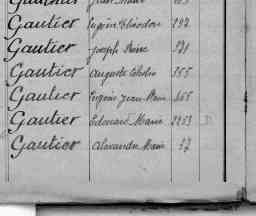 Gautier
Gautier Eugène Théodore 292
Gautier Joseph Reine 521
Gautier Auguste 355
Gautier Eugène Jean Marie 465
Gautier Edouard Marie 2253
Gautier Alexandre Marie 37